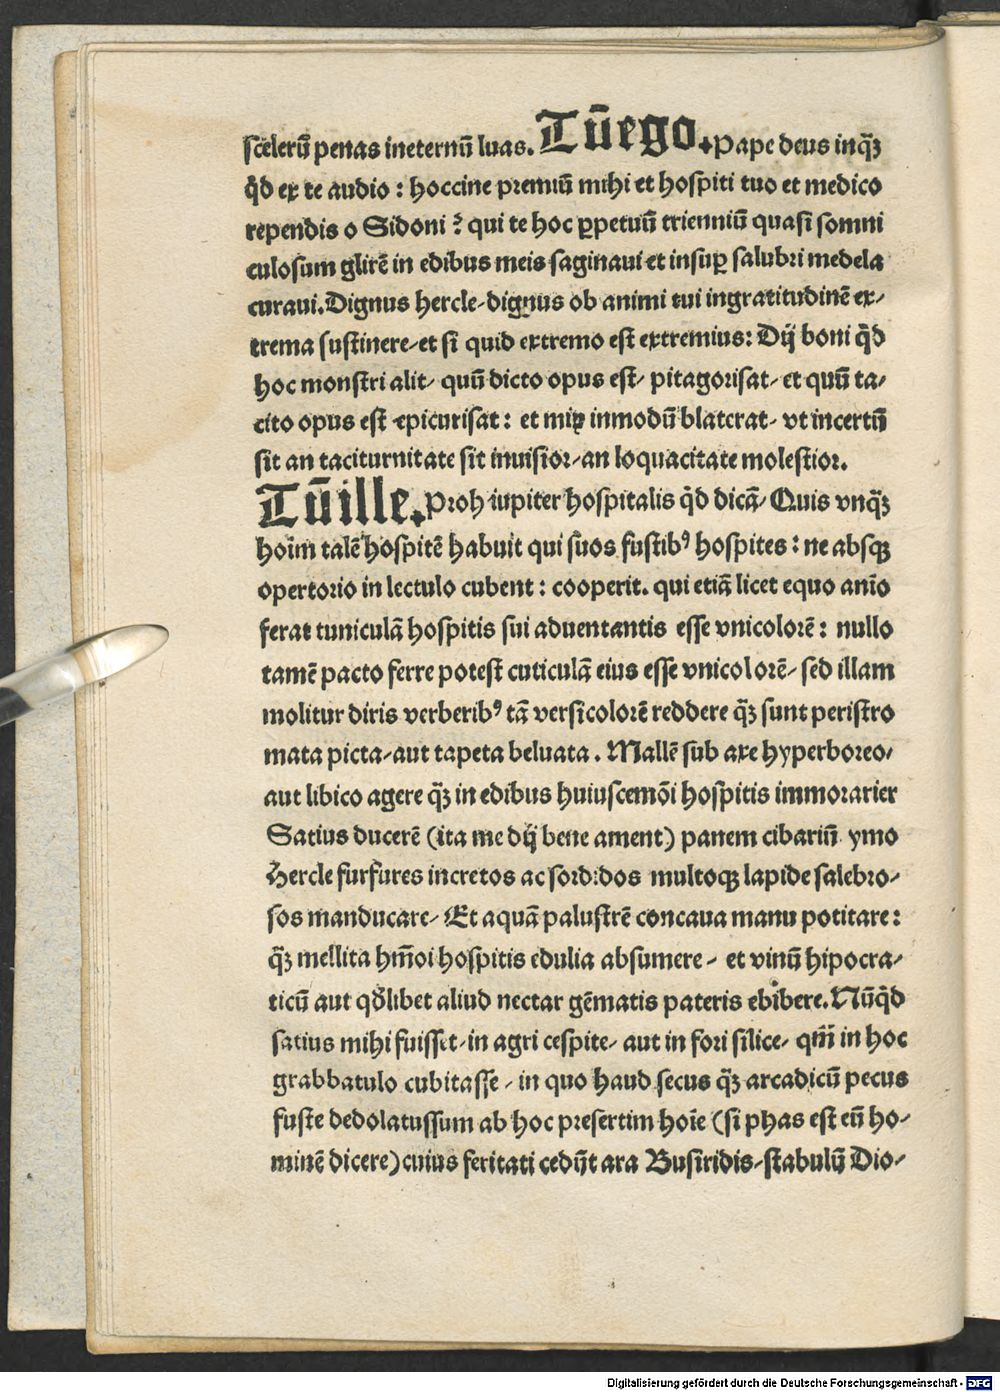 scelerū penas ineternū luas. Tū̄ego. Pape deus inq̄ꝫ
q̄d ex te audio : hoccine premiū mihi et hospiti tuo et medico
rependis o Sidoni ? qui te hoc ꝑpetuū trienniū quasi somni
culosum glirē in edibus meis saginaui et insuꝑ salubri medela
curaui. Dignus hercle-dignus ob animi tui ingratitudinē ex-
trema sustinere-et si quid extremo est extremius: Dij boni q̄d
hoc monstri alit- quū dicto opus est- pitagorisat- et quū ta-
cito opus est epicurisat : et miꝝ inmodū blaterat- vt incertū
sit an taciturnitate sit inuisior-an loquacitate molestior.
Tū̄ille. Proh iupiter hospitalis q̄d dicā- Quis vnq̄ꝫ
hoim talē hospitē habuit qui suos fustibꝰ hospites : ne absqꝫ
opertorio in lectulo cubent : cooperit. qui etiā licet equo anīo
ferat tuniculā hospitis sui aduentantis esse vnicolorē : nullo
tamē pacto ferre potest cuticulā eius esse vnicolorē- sed illam
molitur diris verberibꝰ tā versicolorē reddere q̄ꝫ sunt peristro
mata picta-aut tapeta beluata . Mallē sub axe hyperboreo-
aut libico agere q̄ꝫ in edibus huiuscemōi hospitis immorarier
Satius ducerē (ita me dij bene ament) panem cibariū ymo
Hercle furfures incretos ac sordidos multoqꝫ lapide salebro-
sos manducare- Et aquā palustrē concaua manu potitare :
q̄ꝫ mellita hm̄oi hospitis edulia absumere - et vinū hipocra-
ticū aut qđlibet aliud nectar gēmatis pateris ebibere. Nūq̄d
satius mihi fuisset-in agri cespite- aut in fori silice- qm̄ in hoc
grabbatulo cubitasse - in quo haud secus q̄ꝫ arcadicū pecus
fuste dedolatussum ab hoc presertim hoīe (si phas est eū ho-
minē dicere) cuius feritati cedūt ara Busiridis-stabulū Dio-
Digitalisierung gefördert durch die Deutsche Forschungsgemeinschaft - DFG